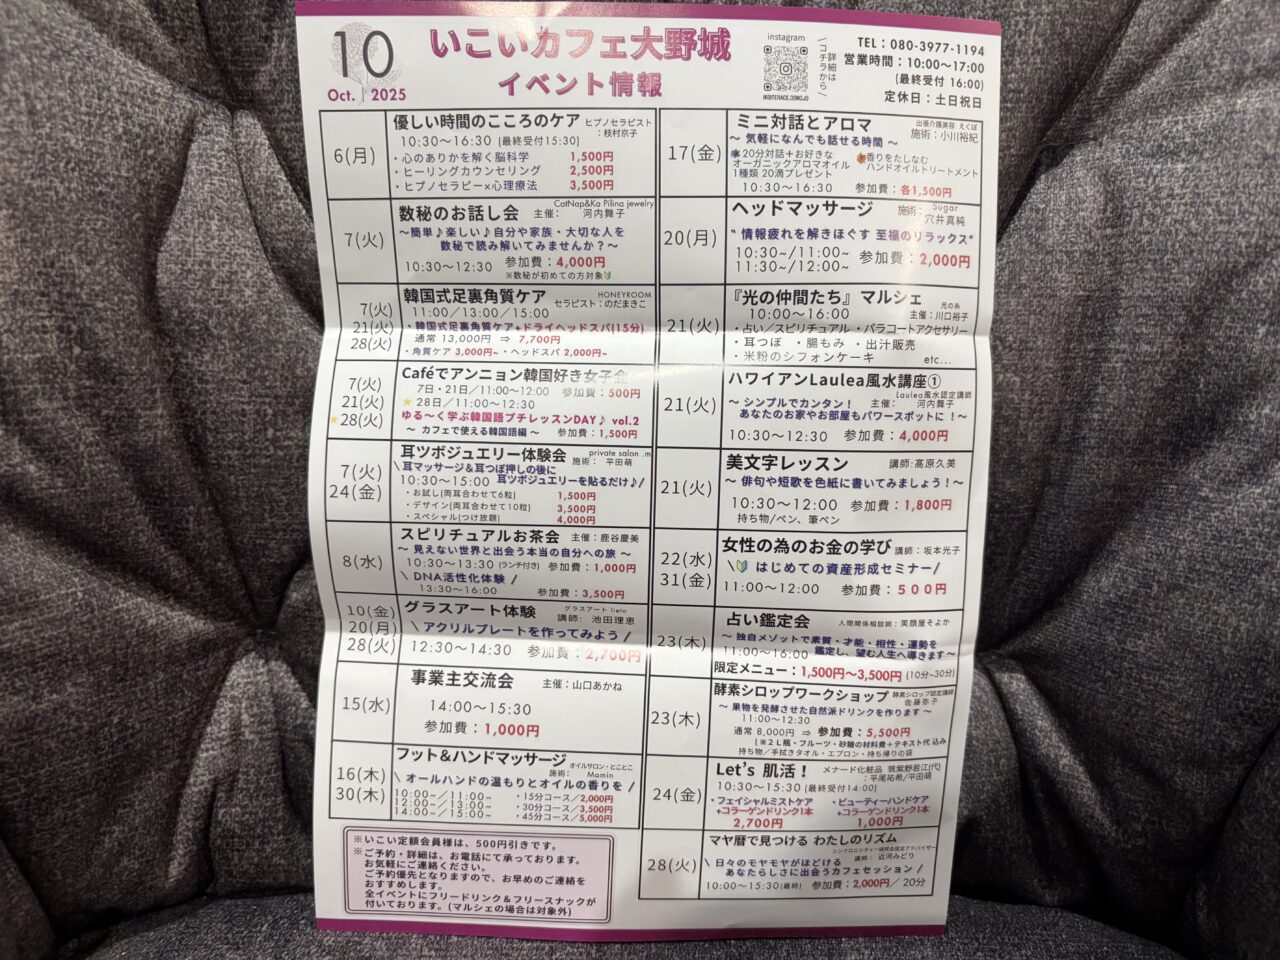 10
Oct. 2025
いこいカフェ大野城
イベント情報
instagram
\ 詳細は
コチラから /
TEL：080-3977-1194
営業時間：10:00〜17:00
(最終受付 16:00)
定休日：土日祝日
6(月)
優しい時間のこころのケア
ヒプノセラピスト
：枝村京子
10:30〜16:30 (最終受付15:30)
・心のありかを解く脳科学 1,500円
・ヒーリングカウンセリング 2,500円
・ヒプノセラピー×心理療法 3,500円
7(火)
数秘のお話し会
CatNap&Ka Pilina jewelry
主催： 河内舞子
〜簡単♪楽しい♪自分や家族・大切な人を
数秘で読み解いてみませんか？〜
10:30〜12:30 参加費：4,000円
※数秘が初めての方対象
7(火)
21(火)
28(火)
韓国式足裏角質ケア
HONEYROOM
セラピスト：のだまきこ
11:00／13:00／15:00
・韓国式足裏角質ケア+ドライヘッドスパ(15分)
通常 13,000円 ⇒ 7,700円
・角質ケア 3,000円~ ・ヘッドスパ 2,000円~
7(火)
21(火)
★28(火)
Caféでアンニョン韓国好き女子会
7日・21日／11:00〜12:00 参加費：500円
★ 28日／11:00〜12:30
ゆる〜く学ぶ韓国語プチレッスンDAY♪ vol.2
〜 カフェで使える韓国語編 〜 参加費：1,500円
7(火)
24(金)
耳ツボジュエリー体験会
private salon .m
施術： 平田萌
\ 耳マッサージ＆耳つぼ押しの後に
10:30〜15:00 耳ツボジュエリーを貼るだけ♪/
・お試し(両耳合わせて6粒) 1,500円
・デザイン(両耳合わせて10粒) 3,500円
・スペシャル(つけ放題) 4,000円
8(水)
スピリチュアルお茶会
主催：鹿谷慶美
〜 見えない世界と出会う本当の自分への旅 〜
10:30〜13:30 (ランチ付き) 参加費：1,000円
\ DNA活性化体験 /
13:30〜16:00 参加費：3,500円
10(金)
20(月)
28(火)
グラスアート体験
グラスアート lieto
講師： 池田理恵
\ アクリルプレートを作ってみよう /
12:30〜14:30 参加費：2,700円
15(水)
事業主交流会
主催：山口あかね
14:00〜15:30
参加費：1,000円
16(木)
30(木)
フット＆ハンドマッサージ
オイルサロン・とことこ
施術： Mamin
\ オールハンドの温もりとオイルの香りを /
10:00~／11:00~ ・15分コース／2,000円
12:00~／13:00~ ・30分コース／3,500円
14:00~／15:00~ ・45分コース／5,000円
※いこい定額会員様は、500円引きです。
※ご予約・詳細は、お電話にて承っております。
お気軽にご連絡ください。
ご予約優先となりますので、お早めのご連絡を
おすすめします。
全イベントにフリードリンク＆フリースナックが
付いております。(マルシェの場合は対象外)
17(金)
ミニ対話とアロマ
出張介護美容 えくぼ
施術：小川裕紀
〜 気軽になんでも話せる時間 〜
20分対話＋お好きな
オーガニックアロマオイル
1種類 20滴プレゼント
香りをたしなむ
ハンドオイルトリートメント
10:30〜16:30 参加費：各1,500円
20(月)
ヘッドマッサージ
施術： Sugar
穴井真純
"情報疲れを解きほぐす 至福のリラックス"
10:30~/11:00~
11:30~/12:00~
参加費：2,000円
21(火)
『光の仲間たち』マルシェ
光の糸
主催：川口裕子
10:00〜16:00
・占い／スピリチュアル ・パラコートアクセサリー
・耳つぼ ・腸もみ ・出汁販売
・米粉のシフォンケーキ etc...
21(火)
ハワイアンLaulea風水講座①
Laulea風水認定講師
主催： 河内舞子
〜 シンプルでカンタン！
あなたのお家やお部屋もパワースポットに！〜
10:30〜12:30 参加費：4,000円
21(火)
美文字レッスン
講師:髙原久美
〜 俳句や短歌を色紙に書いてみましょう！〜
10:30〜12:00 参加費：1,800円
持ち物／ペン、筆ペン
22(水)
31(金)
女性の為のお金の学び
講師：坂本光子
\ はじめての資産形成セミナー/
11:00〜12:00 参加費：５００円
23(木)
占い鑑定会
人間関係相談師：笑顔屋そよか
〜 独自メゾットで素質・才能・相性・運勢を
11:00〜16:00 鑑定し、望む人生へ導きます〜
限定メニュー：1,500円〜3,500円 (10分~30分)
23(木)
酵素シロップワークショップ
酵素シロップ認定講師
佐藤弥子
〜 果物を発酵させた自然派ドリンクを作ります 〜
11:00〜12:30
通常 8,000円 ⇒ 参加費：5,500円
(※２Ｌ瓶・フルーツ・砂糖の材料費＋テキスト代 込み)
持ち物／手拭きタオル・エプロン・持ち帰りの袋
24(金)
Let's 肌活！
メナード化粧品 筑紫野若江(代)
：平尾祐希/平田萌
10:30〜15:30 (最終受付14:00)
・フェイシャルミストケア
+コラーゲンドリンク1本
2,700円
・ビューティーハンドケア
+コラーゲンドリンク1本
1,000円
28(火)
マヤ暦で見つける わたしのリズム
講師： 近河みどり
\ 日々のモヤモヤがほどける
あなたらしさに出会うカフェセッション /
10:00〜15:30(最終) 参加費：2,000円／20分